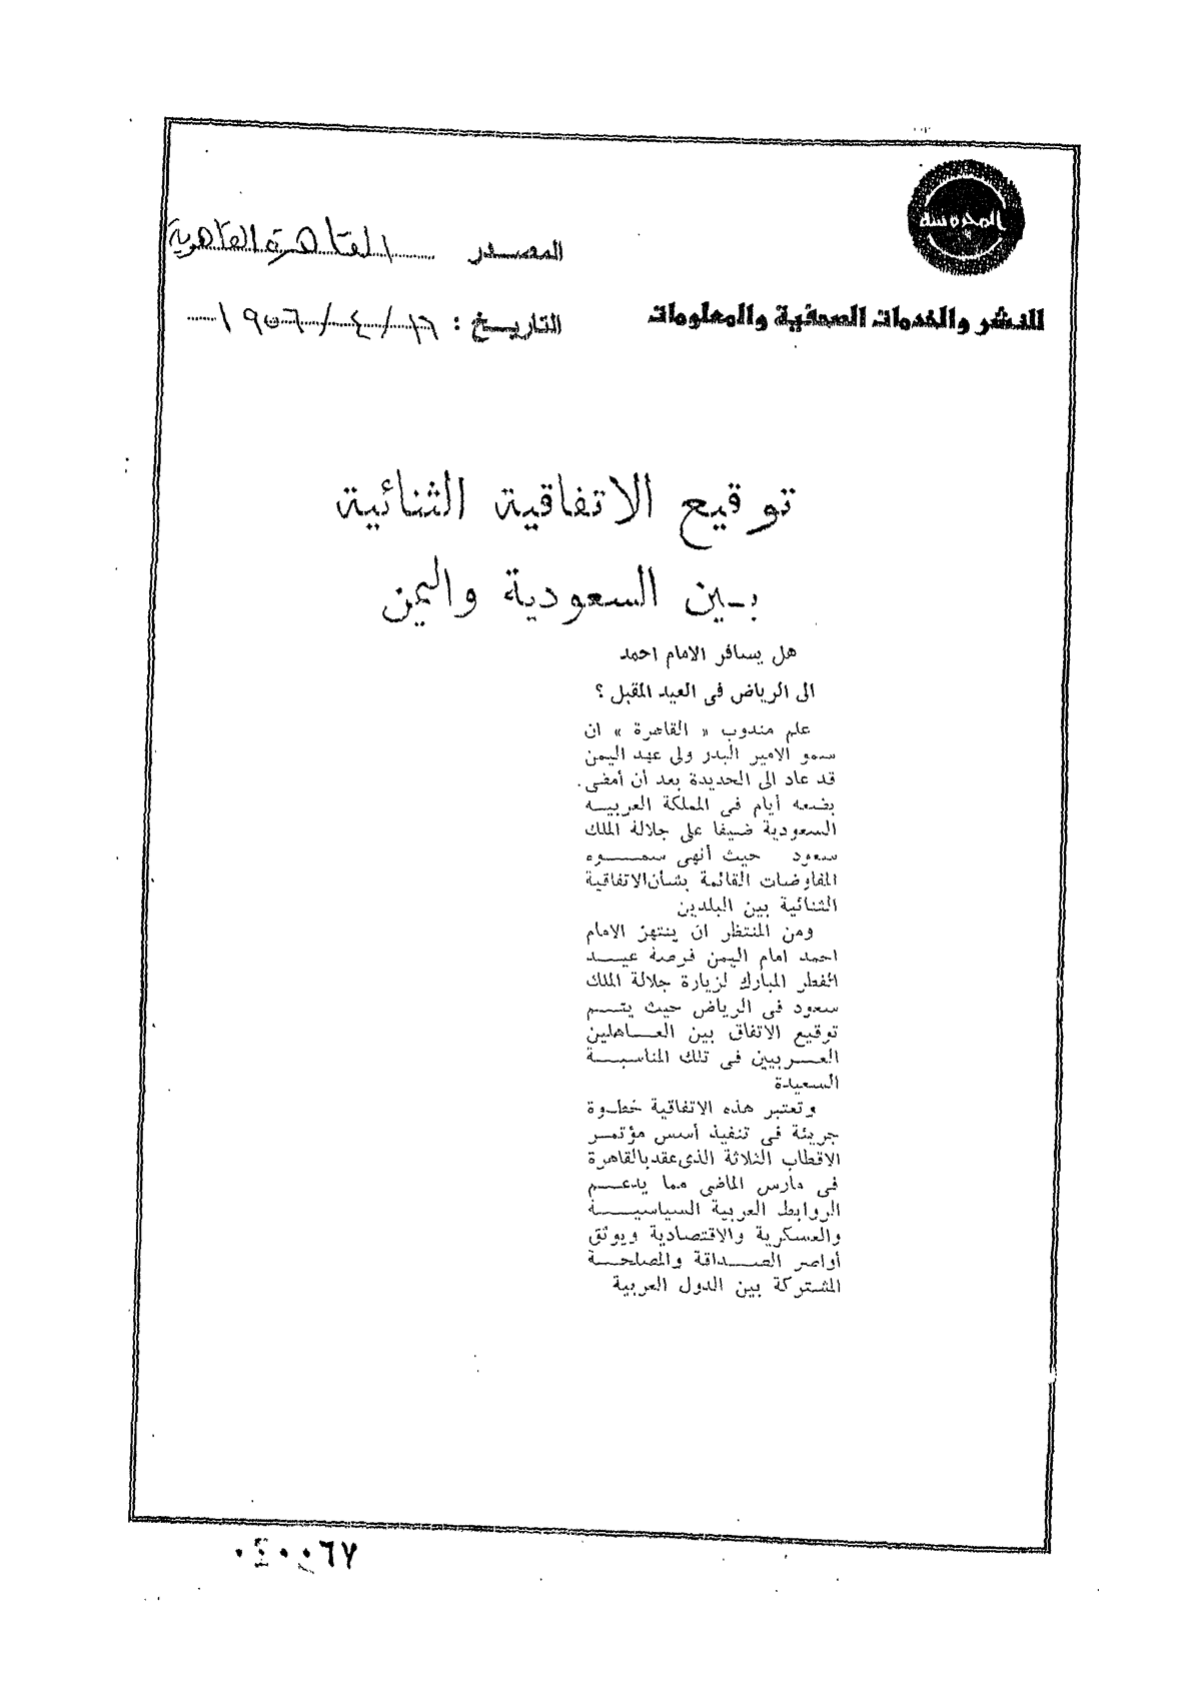 المحروسة
للنشر والخدمات الصحفية والمعلومات
المصدر القاهرة القاهرية
التاريخ : ١٦/٤/١٩٥٦
توقيع الاتفاقية الثنائية
بين السعودية واليمن
هل يسافر الامام احمد
الى الرياض فى العيد المقبل ؟
علم مندوب « القاهرة » ان
سمو الامير البدر ولى عهد اليمن
قد عاد الى الحديدة بعد أن أمضى
بضعه أيام فى المملكة العربيه
السعودية ضيفا على جلالة الملك
سعود حيث أنهى سموه
المفاوضات القائمة بشأن الاتفاقية
الثنائية بين البلدين
ومن المنتظر ان ينتهز الامام
احمد امام اليمن فرصة عيد
الفطر المبارك لزيارة جلالة الملك
سعود فى الرياض حيث يتم
توقيع الاتفاق بين العاهلين
العربيين فى تلك المناسبة
السعيدة
وتعتبر هذه الاتفاقية خطوة
جريئة فى تنفيذ أسس مؤتمر
الاقطاب الثلاثة الذى عقد بالقاهرة
فى مارس الماضى مما يدعم
الروابط العربية السياسية
والعسكرية والاقتصادية ويوثق
أواصر الصداقة والمصلحة
المشتركة بين الدول العربية